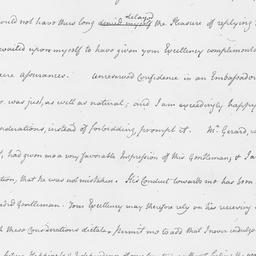 ould not have thus long denied myself delayed the Pleasure of replying
xerted upon myself to have given your Excellency compliments
ere assurances. Unreserved Confidence in an Embassador
was just, as well as natural; and I am exceedingly happy
nsiderations, instead of forbidding, prompt it. Mr. Gerard,
had given me a very favorable Impression of this Gentleman; & I a
tion, that he was not mistaken. His Conduct towards me has been
ded Gentleman. Your Excellency may therefore rely on his receiving
h these Considerations dictate. Permit me to add that I have indulg
Happiness & Independence